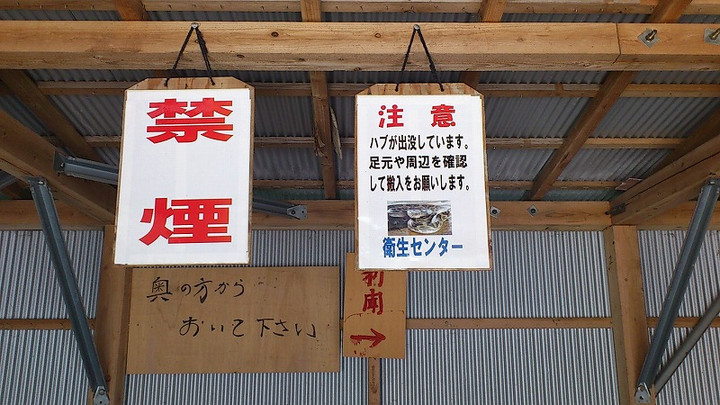 禁
煙
注意
ハブが出没しています。
足元や周辺を確認
して搬入をお願いします。
衛生センター
奥の方から
おいて下さい
新聞
→